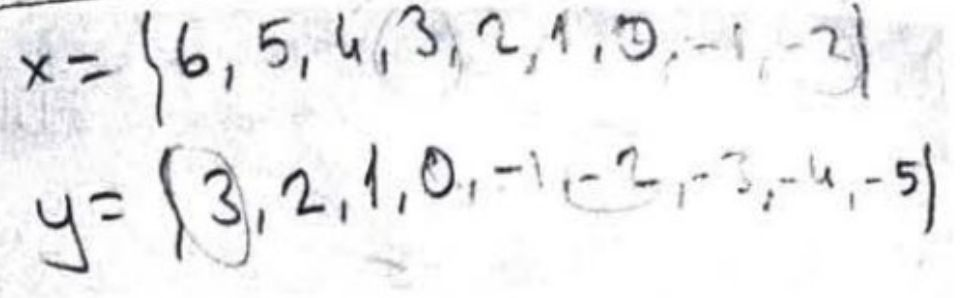 x = {6, 5, 4, 3, 2, 1, 0, -1, -2}
y = {3, 2, 1, 0, -1, -2, -3, -4, -5}